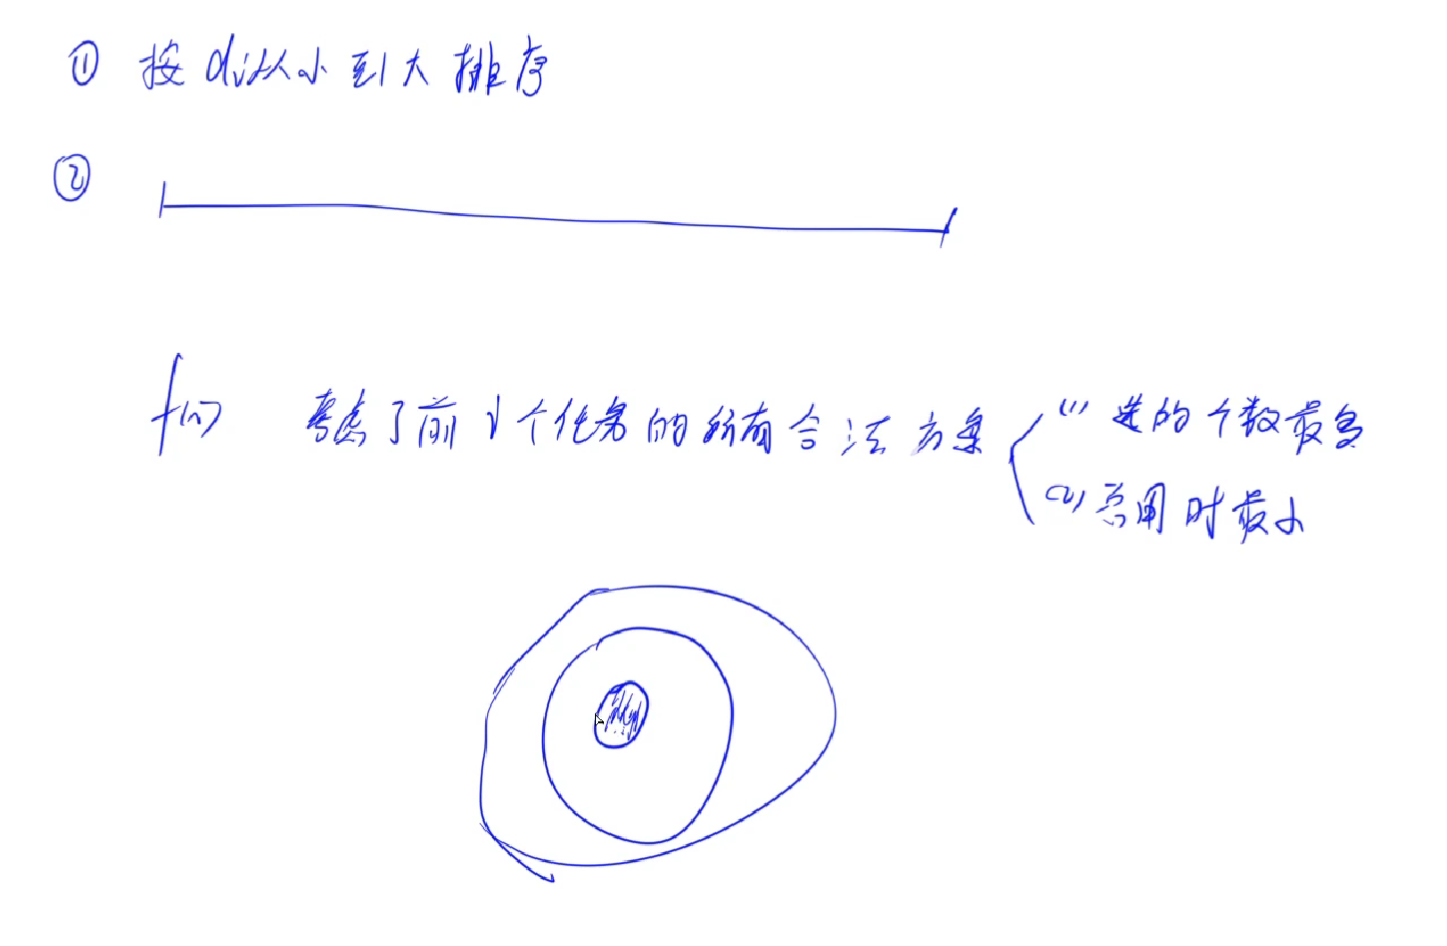 ① 按di从小到大排序
②
f(i) 考虑了前i个任务的所有合法方案 (1) 选的个数最多
(2) 总用时最小